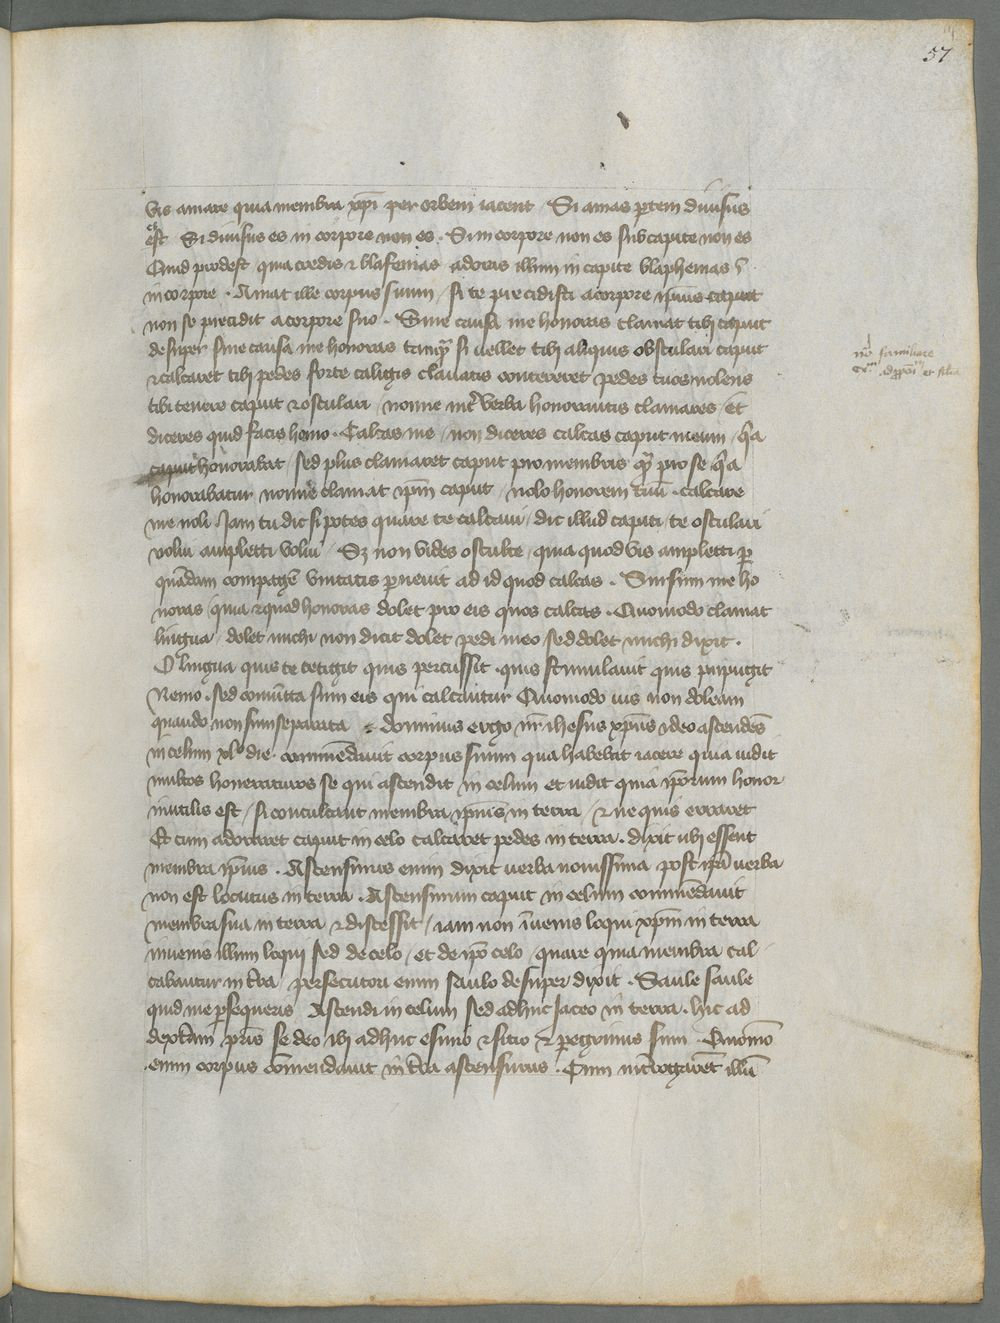 57
vis amare quia membra xpi per orbem iacent / Si amas partem diuisus
es
est Si diuisus es in corpore non es . Si in corpore non es sub capite non es
Quid prodest quia credis et blasfemas adoras illum in capite blaphemas
in corpore . Amat ille corpus suum / si te precidisti a corpore ipsius caput
non se precidit a corpore suo . Sine causa me honoras clamat tibi caput
desuper sine causa me honoras tamquam si uellet tibi aliquis obsculari caput
et calcaret tibi pedes forte caligis clauatis contereret pedes tuos nolens
no familiare
et filia
tibi tenere caput et osculari / nonne inter verba honorantis clamares / Et
diceres quid facis homo . Calcas me / non diceres calcas caput meum / quia
caput honorabat / sed plus clamaret caput pro membris quam pro se quia
honorabatur nonne clamat ipm caput / nolo honorem tuu . calcare
me noli Jam tu dic si potes quare te calcaui / dic illud capiti / te osculari
volui ampletti volui / Sz non vides o stulte / quia quod vis ampletti per
quadam compage vnitatis peruenit ad id quod calcas . Sursum me ho
noras / quia et quod honoras dolet pro eis quos calcas . Quomodo clamat
lingua / dolet michi non dicit dolet pedi meo sed dolet michi dixit .
O lingua quis te tetigit quis percussit . quis stimulauit quis pupugit
Nemo . sed coniuncta sum eis qui calcantur Quomodo uis non doleam
quando non sum separata et dominus ergo nr ihesus xpus ideo ascendes
in celum xlo die . commedauit corpus suum qua habebat iacere quia uidit
multos honeraturos se qui ascendit in celum et uidit quia ipsorum honor
inutilis est / si conculcant membra ipsius in terra / et ne quis erraret
Et cum adoraret caput in celo calcaret pedes in terra . dixit ubi essent
membra ipius . Ascensurus enim dixit uerba nouissima post ipa uerba
non est locutus in terra . Ascensurum caput in celum commedauit
membra sua in terra et discessit / iam non iuenis loqui xpm in terra
inuenis illum loqui sed de celo / et de ipo celo / quare quia membra cal
cabantur in tra / persecutori enim saulo desuper dixit . Saule saule
quid me psequeris Ascendi in celum sed adhuc iaceo in terra . hic ad
dextam pris sedeo ibi adhuc esurio et sitio et peregrinus sum . Quomo
enim corpus comendauit in tra ascensurus . Cum intrrogaret illu